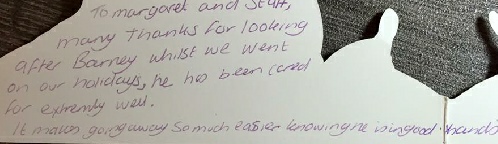 To margaret and Staff,
many Thanks for looking
after Barney whilst we went
on our holidays, he has been cared
for extremly well.
It makes going away so much easier knowing he is in good hands